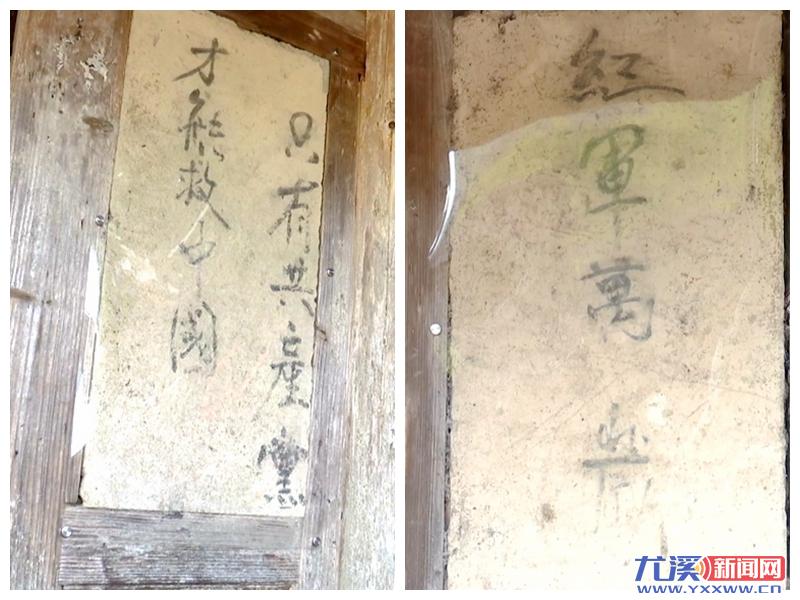 只有共產黨
才能救中國
紅軍萬歲
尤溪新闻网
www.YXXWW.CN